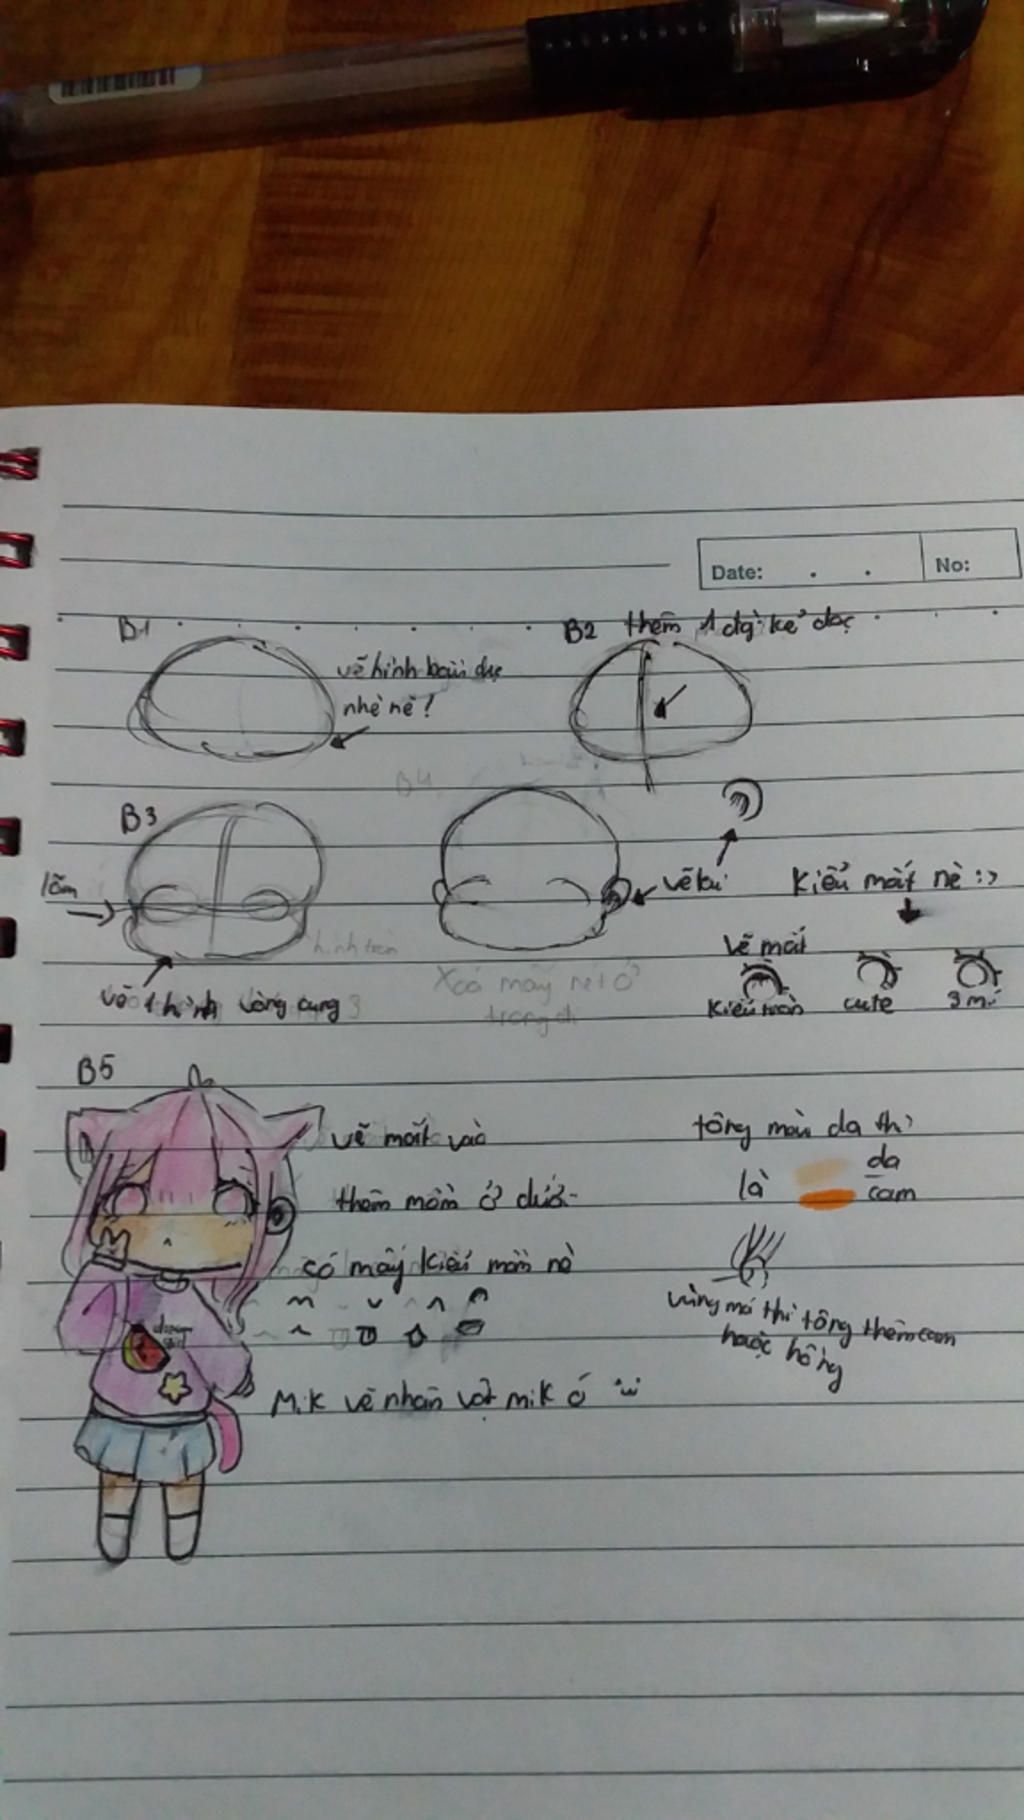 Date: . . No:
B1
vẽ hình bầu dục
nhè nè!
B2 thêm 1 đg kẻ dọc
B3
lõm
vẽ 1 hình vòng cung
hình tròn
B4
vẽ tai
Xoá mấy nét ở
trong đi
Kiểu mắt nè :>
vẽ mắt
cute
3 mí
B5
vẽ mắt vào
thêm mồm ở dưới
có mấy kiểu mồm nè
Mik vẽ nhân vật mik ó
tông màu da thì
là da
cam
vùng má thì tông thêm cam
hoặc hồng